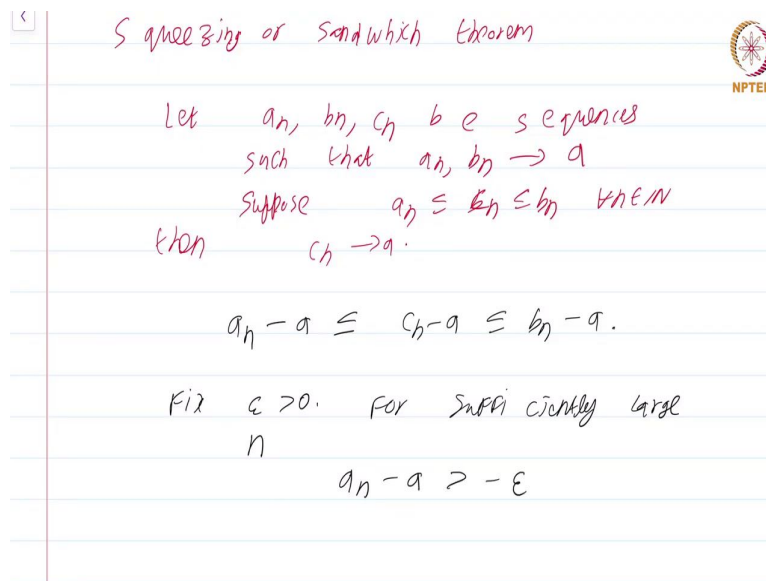 Squeezing or Sandwhich theorem
NPTEL
Let an, bn, cn be sequences
such that an, bn → a
Suppose an ≤ cn ≤ bn ∀n∈ℕ
then cn → a.
an - a ≤ cn - a ≤ bn - a.
Fix ε > 0. For sufficiently large
n
an - a > - ε